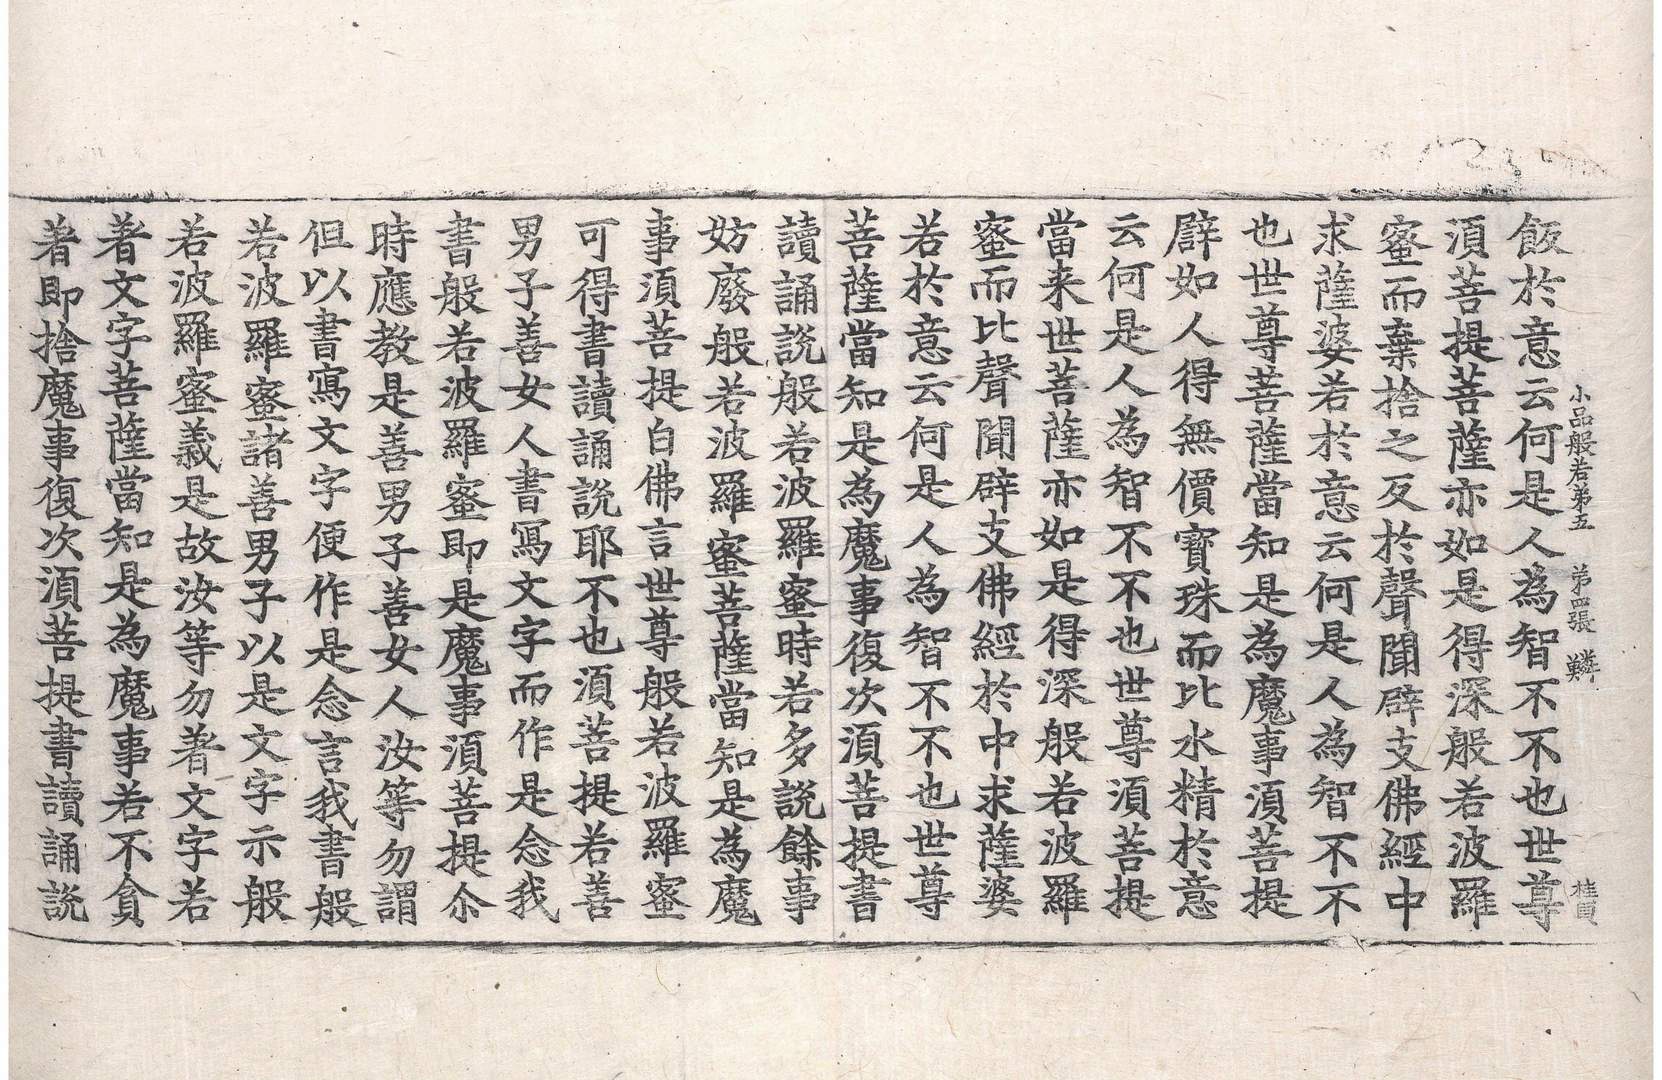 小品般若苐五　苐四張　鱗　桂頁
飯於意云何是人為智不不也世尊
湏菩提菩薩亦如是得深般若波羅
蜜而棄捨之反於聲聞辟支佛經中
求薩婆若於意云何是人為智不不
也世尊菩薩當知是為魔事湏菩提
辟如人得無價寶珠而比水精於意
云何是人為智不不也世尊湏菩提
當来世菩薩亦如是得深般若波羅
蜜而比聲聞辟支佛經於中求薩婆
若於意云何是人為智不不也世尊
菩薩當知是為魔事復次湏菩提書
讀誦說般若波羅蜜時若多說餘事
妨廢般若波羅蜜菩薩當知是為魔
事湏菩提白佛言世尊般若波羅蜜
可得書讀誦說耶不也湏菩提若善
男子善女人書寫文字而作是念我
書般若波羅蜜即是魔事湏菩提尒
時應教是善男子善女人汝等勿謂
但以書寫文字便作是念言我書般
若波羅蜜諸善男子以是文字示般
若波羅蜜義是故汝等勿著文字若
著文字菩薩當知是為魔事若不貪
著即捨魔事復次湏菩提書讀誦說